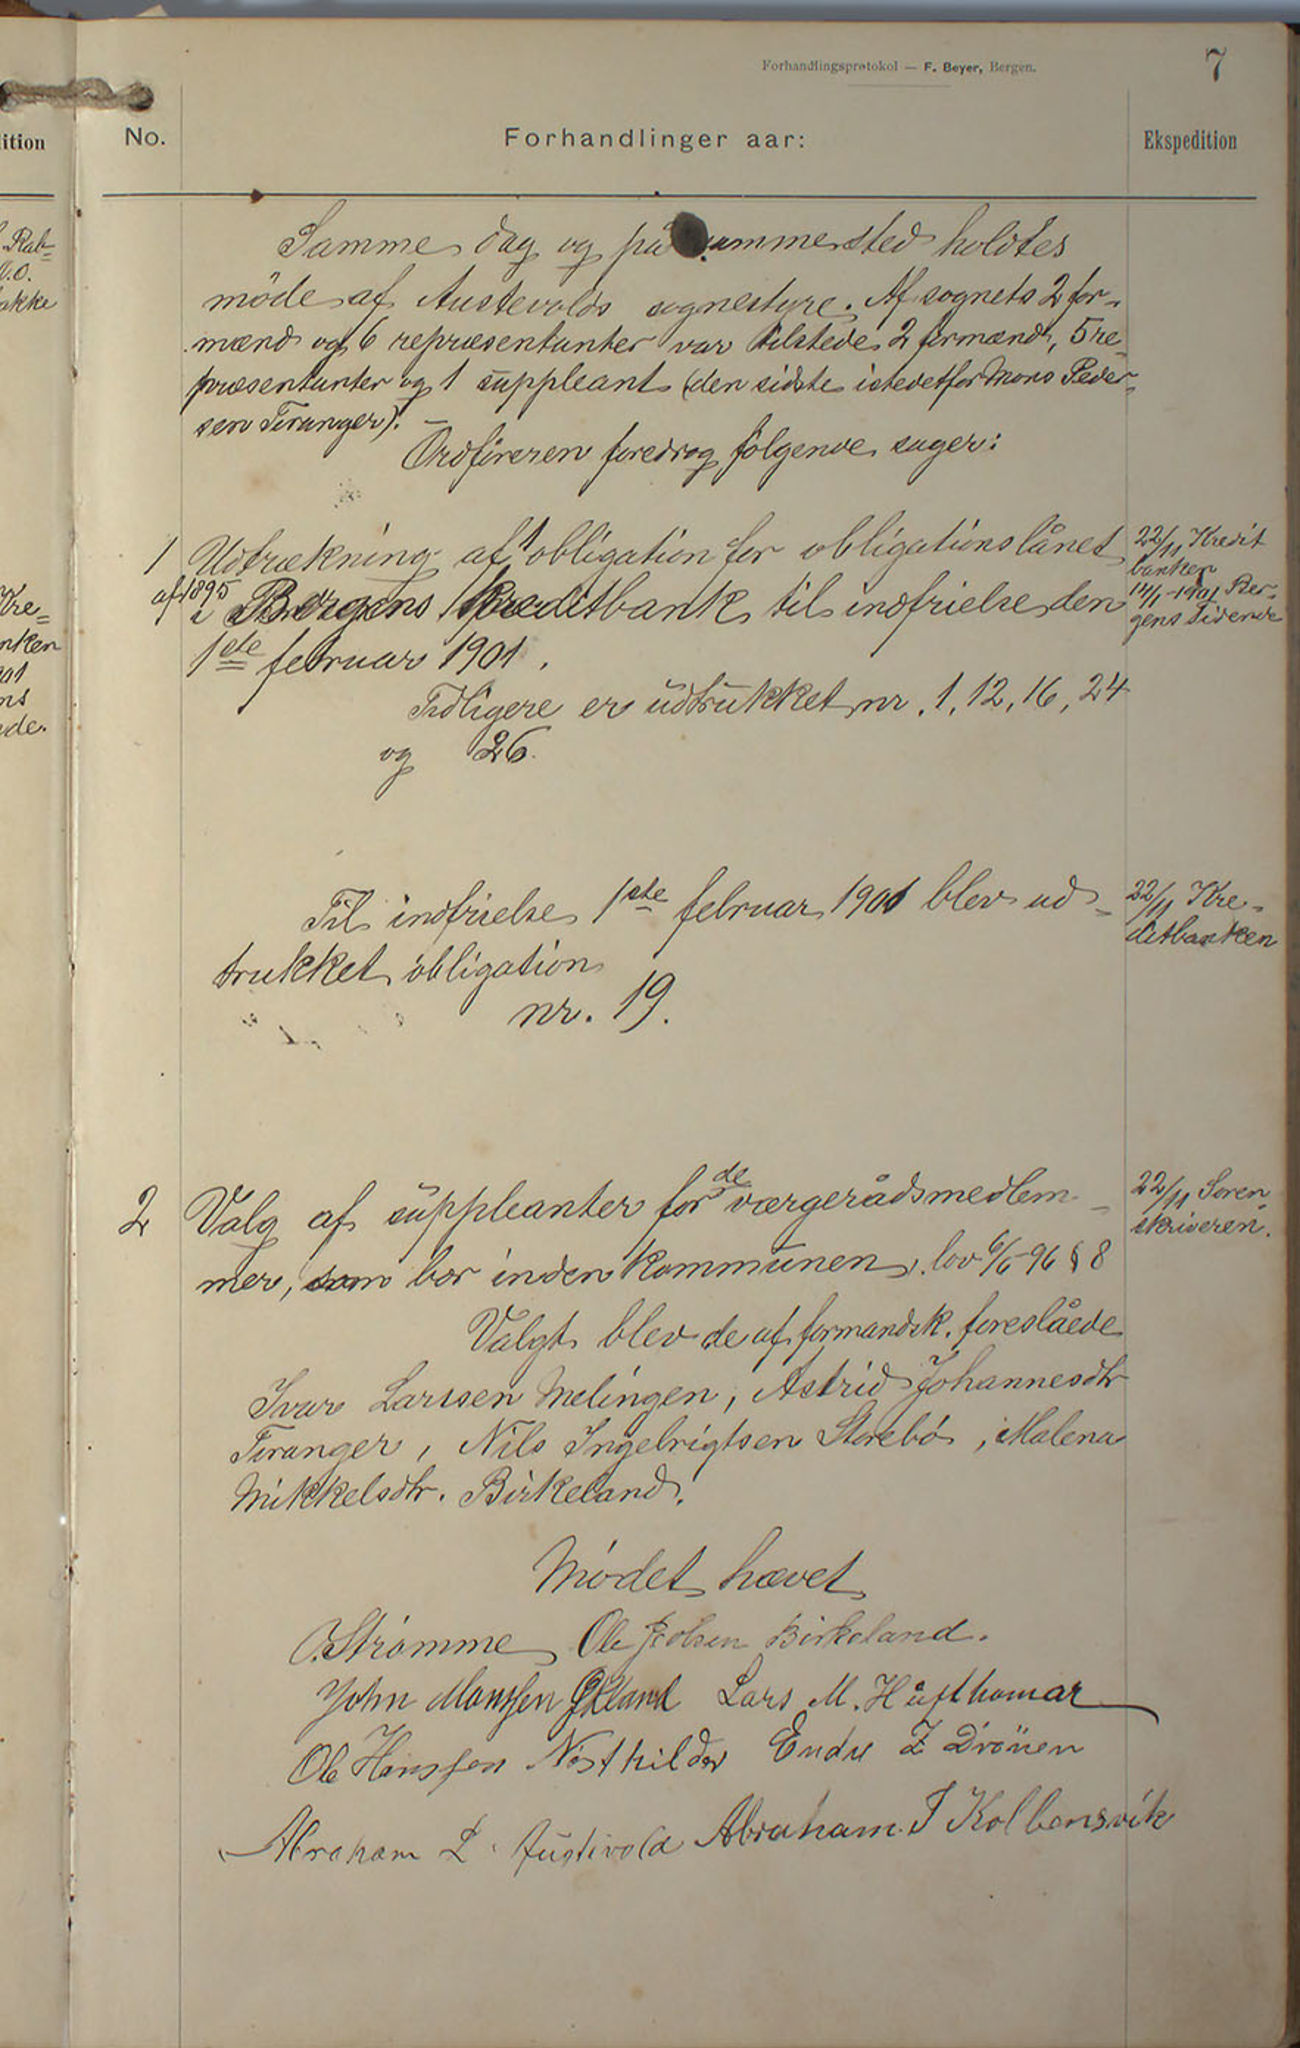 Forhandlingsprotokol — F. Beyer, Bergen.
7
No.
Forhandlinger aar:
Ekspedition
Samme dag og på sammested holdtes
möde af Austevolds sognestyre. Af sognets 2 for-
mænd og 6 repræsentanter var tilstede 2 formænd, 5 re
præsentanter og 1 suppleant (den sidste istedetfor Mons Peder-
sen Tiranger).
Ordföreren foredrog følgende sager:
1 Udtrækning af 1 obligation for obligationslånet
af 1895 i Bergens Kreditbank til indfrielse den
1ste februar 1901.
22/11 Kredit
banken
14/1-1901 Ber-
gens Tidende
Tidligere er udtrukket nr. 1, 12, 16, 24
og 26.
Til indfrielse 1ste februar 1901 blev ud-
trukket obligation
nr. 19.
22/11 Kre-
ditbanken
2 Valg af suppleanter for de værgerådsmedlem-
mer, som bor inden kommunen, lov 6/6-96 § 8
22/11 Soren-
skriveren.
Valgt blev de af formandsk. foreslåede
Ivar Larssen Melingen, Astrid Johannesdtr
Tiranger, Nils Ingebrigtsen Storebö, Malena
Mikkelsdtr. Birkeland.
Mödet hævet
O. Strømme Ole Olsen Birkeland.
John Monssen Økland Lars M. Hufthamar
Ole Hanssen Nøsthilder Endre Z Drönen
Abraham L. Austivold Abraham J Kolbensvik